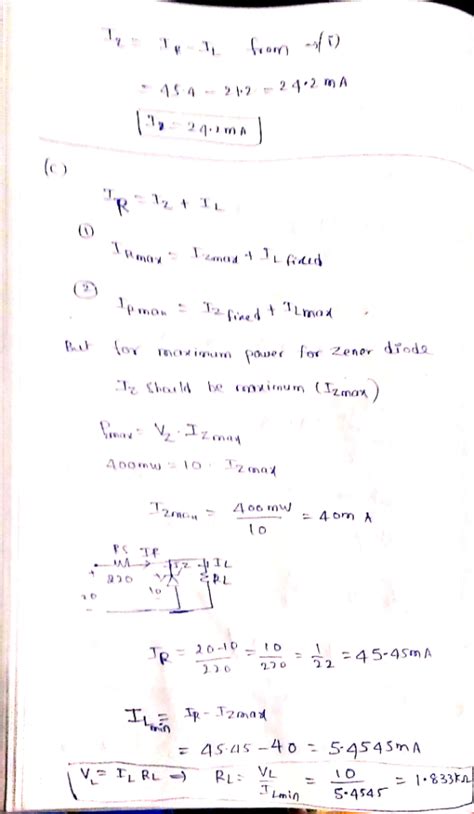 I_Z = I_R - I_L from →(i)
= 45.4 - 21.2 = 24.2 mA
I_Z = 24.2 mA
(c)
I_R = I_Z + I_L
(1)
I_Rmax = I_Zmax + I_L fixed
(2)
I_Rmax = I_Z fixed + I_Lmax
But for maximum power for zener diode
I_Z should be maximum (I_Zmax)
Pmax = V_Z . I_Zmax
400mW = 10 . I_Zmax
I_Zmax = 400mW/10 = 40m A
RS IR
220 IZ IL
+ RL
20 10
I_R = 20-10/220 = 10/220 = 1/22 = 45.45mA
I_Lmin = I_R - I_Zmax
= 45.45 - 40 = 5.4545mA
V_L = I_L R_L ⇒ R_L = V_L/I_Lmin = 10/5.4545 = 1.833kΩ